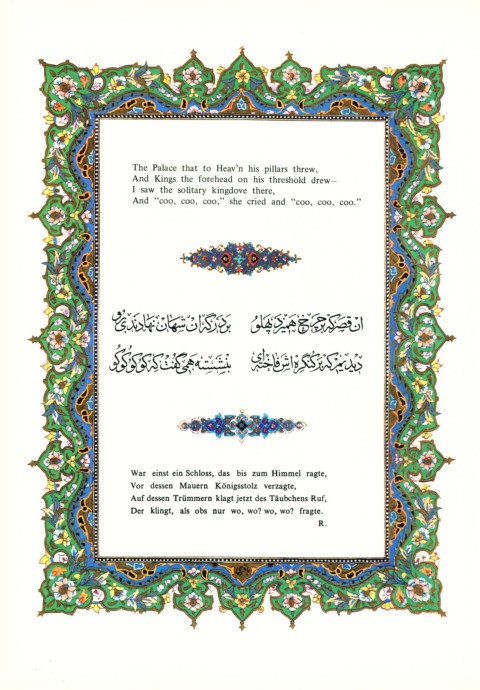 The Palace that to Heav'n his pillars threw,
And Kings the forehead on his threshold drew—
I saw the solitary kingdove there,
And "coo, coo, coo," she cried and "coo, coo, coo."
آن قصر که بر چرخ همیزد پهلو بر درگه آن شهان نهادندی رو
دیدیم که بر کنگره اش فاخته‌ای بنشسته همی گفت که کوکوکوکو
War einst ein Schloss, das bis zum Himmel ragte,
Vor dessen Mauern Königsstolz verzagte,
Auf dessen Trümmern klagt jetzt des Täubchens Ruf,
Der klingt, als obs nur wo, wo? wo, wo? fragte.
R.